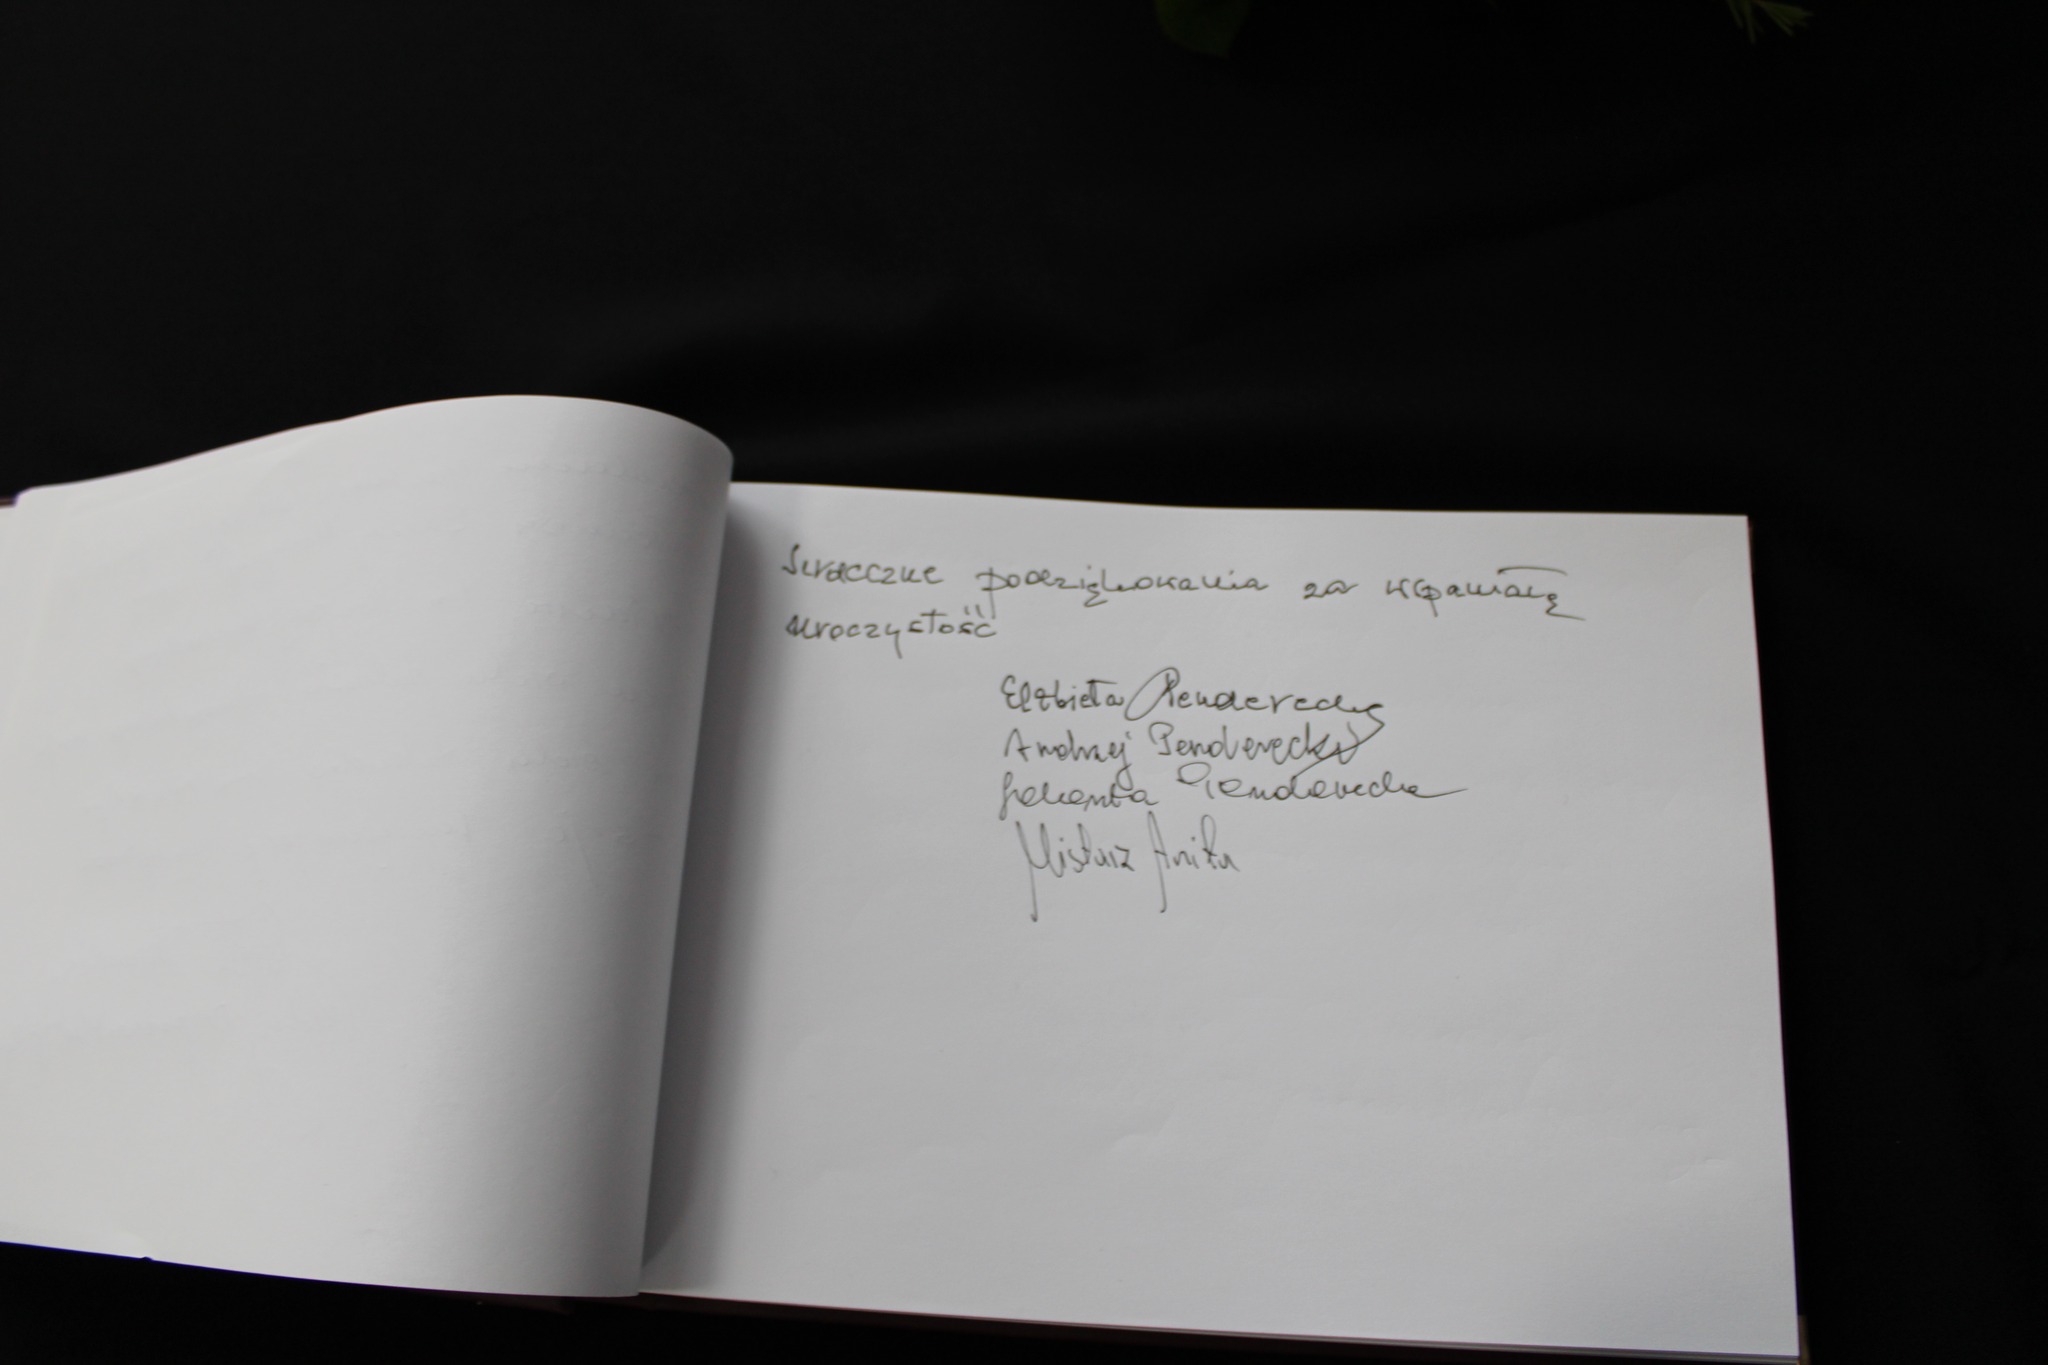 Serdeczne podziękowania za wspaniałą
uroczystość
Elżbieta Penderecka
Andrzej Penderecki
Jolanta Penderecka
Anita